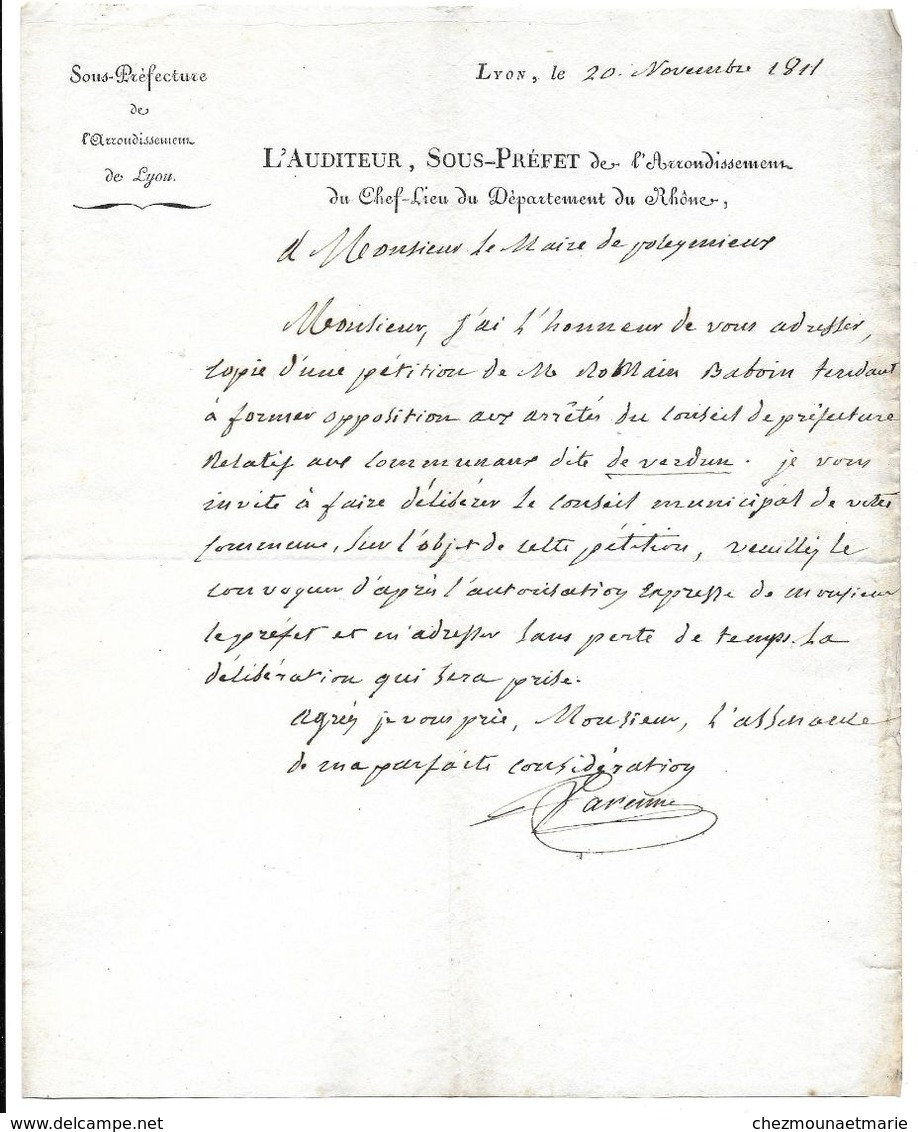 Sous-Préfecture
de
l'Arrondissement
de Lyon.
Lyon, le 20. Novembre 1811
L'Auditeur, Sous-Préfet de l'Arrondissement
du Chef-Lieu du Département du Rhône,
A Monsieur le Maire de poleymieux
Monsieur, j'ai l'honneur de vous adresser,
copie d'une pétition de Mr Romain Baboin tendant
à former opposition aux arrêtés du Conseil de préfecture
Relatif aux communaux dits de verdun. je vous
invite à faire délibérer le conseil municipal de votre
commune, sur l'objet de cette pétition, veuillez le
convoquer d'après l'autorisation Expresse de monsieur
le préfet et m'adresser sans perte de temps. la
délibération qui sera prise.
Agréez je vous prie, Monsieur, l'assurance
de ma parfaite considération
delcampe.net
chezmounaetmarie